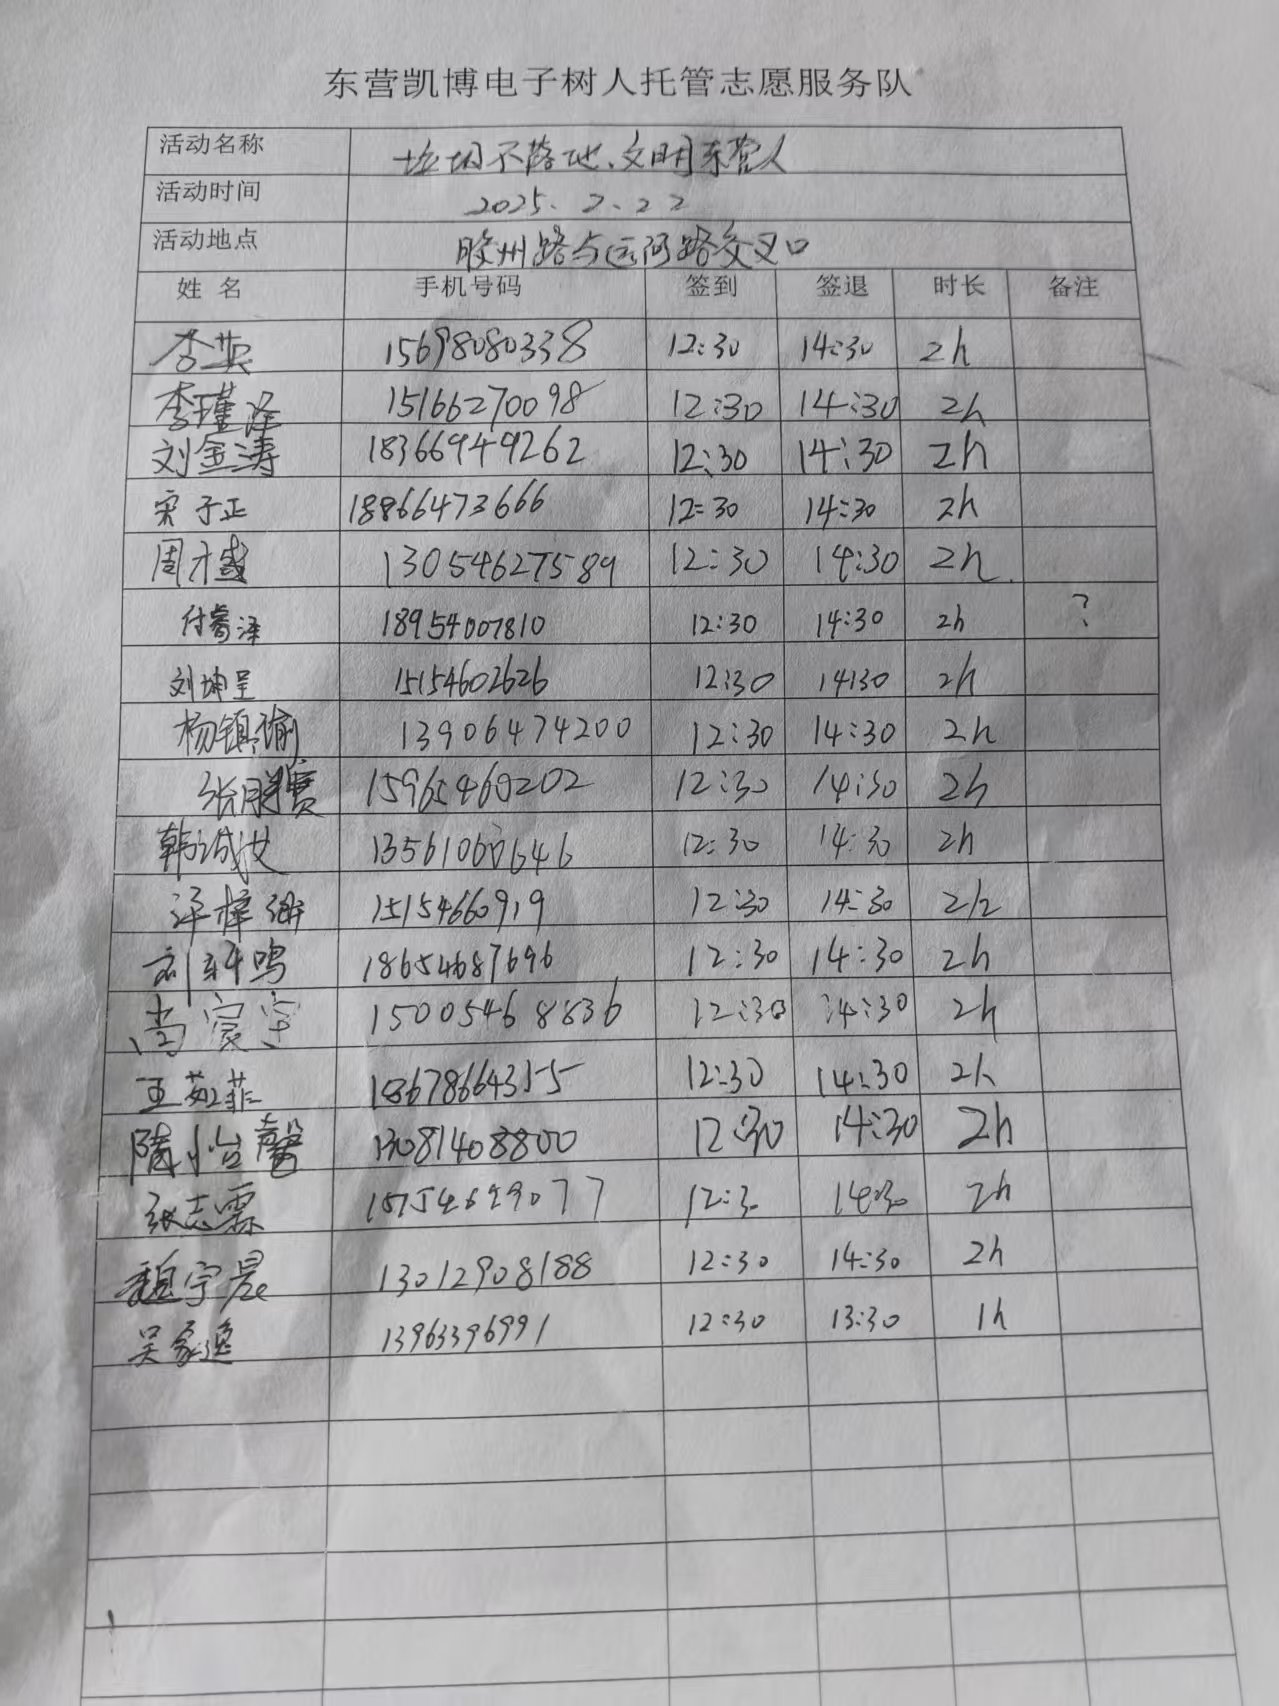 东营凯博电子树人托管志愿服务队
活动名称 垃圾不落地、文明东营人
活动时间 2025.2.22
活动地点 胶州路与运河路交叉口
姓 名 手机号码 签到 签退 时长 备注
李英 15698080338 12:30 14:30 2h
李瑾泽 15166270098 12:30 14:30 2h
刘金涛 18366949262 12:30 14:30 2h
宋子正 18866473666 12:30 14:30 2h
周才盛 13054627589 12:30 14:30 2h
付睿泽 18954007810 12:30 14:30 2h ?
刘坤呈 15154602626 12:30 14:30 2h
杨镇瑜 13906474200 12:30 14:30 2h
张 15965460202 12:30 14:30 2h
韩诚 13561060646 12:30 14:30 2h
梓 15154660919 12:30 14:30 2h
刘 鸣 18654687696 12:30 14:30 2h
尚宸宇 15005468836 12:30 14:30 2h
王茹菲 18678664355 12:30 14:30 2h
隋怡馨 13081408800 12:30 14:30 2h
张志霖 12:30 14:30 2h
魏宇晨 13012908188 12:30 14:30 2h
吴家逸 13963396991 12:30 13:30 1h